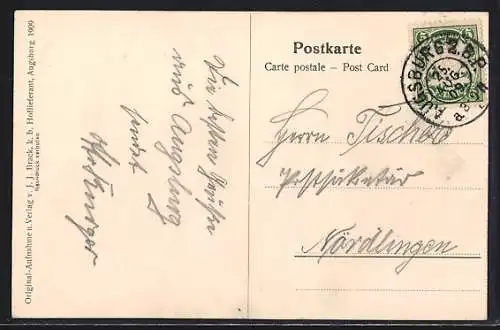 Original-Aufnahme u. Verlag v. J. J. Brack, k. b. Hoflieferant, Augsburg 1909
Nachdruck verboten
Die besten Grüße
aus Augsburg
sendet
Postkarte
Carte postale – Post Card
5 5
AUGSBURG 2. B.P.
Herrn Tischer
Postsekretär
Nördlingen